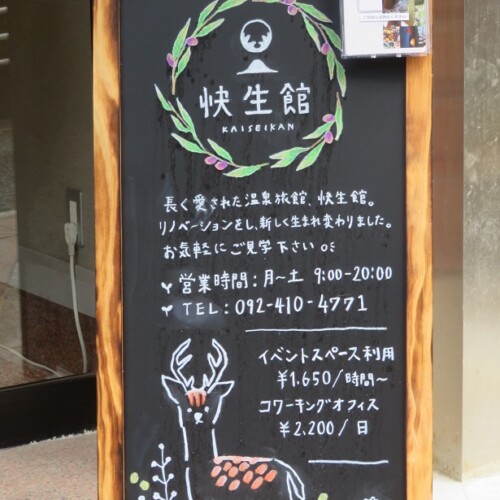 快生館
KAISEIKAN
長く愛された温泉旅館、快生館。
リノベーションをし、新しく生まれ変わりました。
お気軽にご見学下さい
営業時間：月〜土 9:00-20:00
TEL：092-410-4771
イベントスペース利用
￥1,650/時間〜
コワーキングオフィス
￥2,200/日